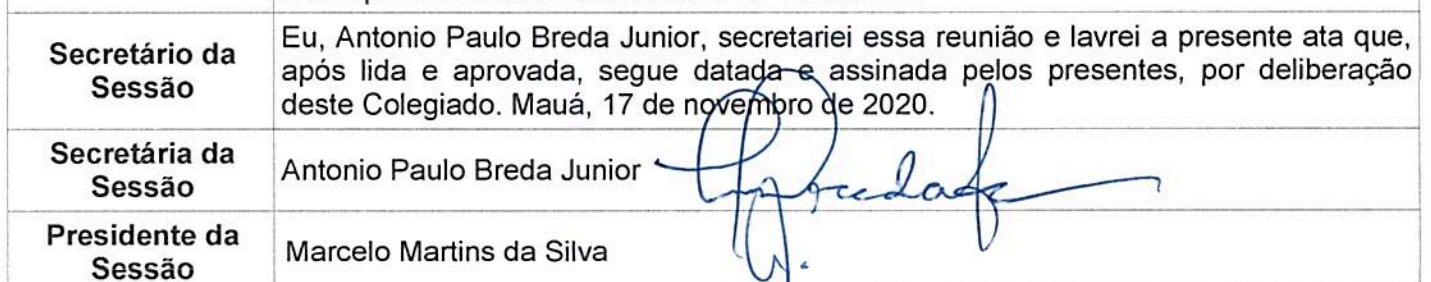 Secretário da
Sessão
Eu, Antonio Paulo Breda Junior, secretariei essa reunião e lavrei a presente ata que,
após lida e aprovada, segue datada e assinada pelos presentes, por deliberação
deste Colegiado. Mauá, 17 de novembro de 2020.
Secretária da
Sessão
Antonio Paulo Breda Junior
Presidente da
Sessão
Marcelo Martins da Silva